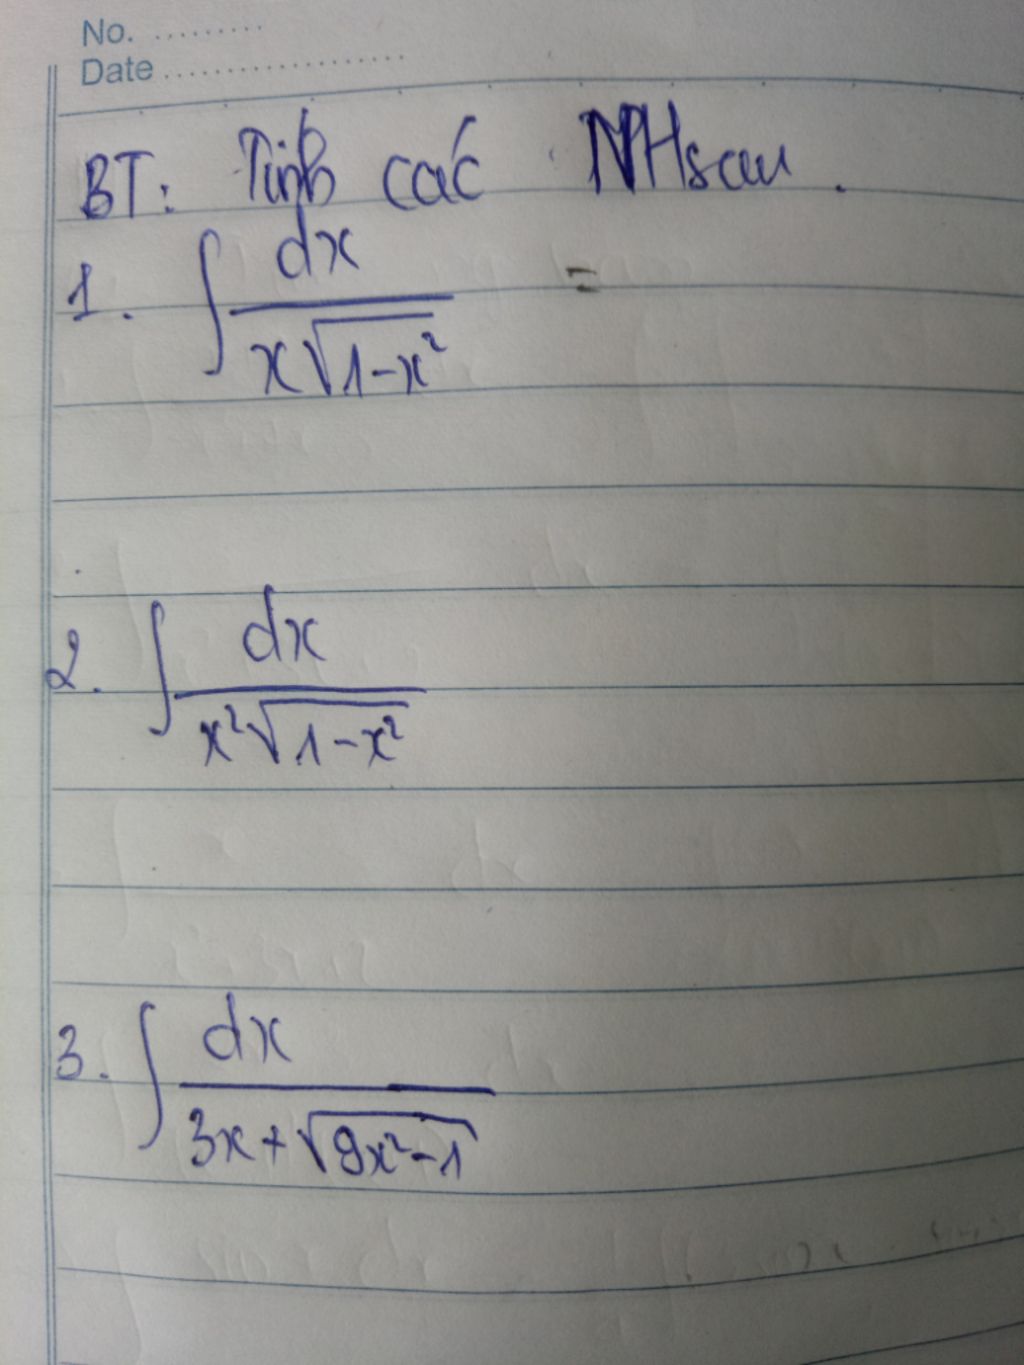 No. .........
Date ..................
BT: Tính các NH sau.
1. ∫ dx / (x√(1-x²)) =
2. ∫ dx / (x²√(1-x²))
3. ∫ dx / (3x+√(9x²-1))